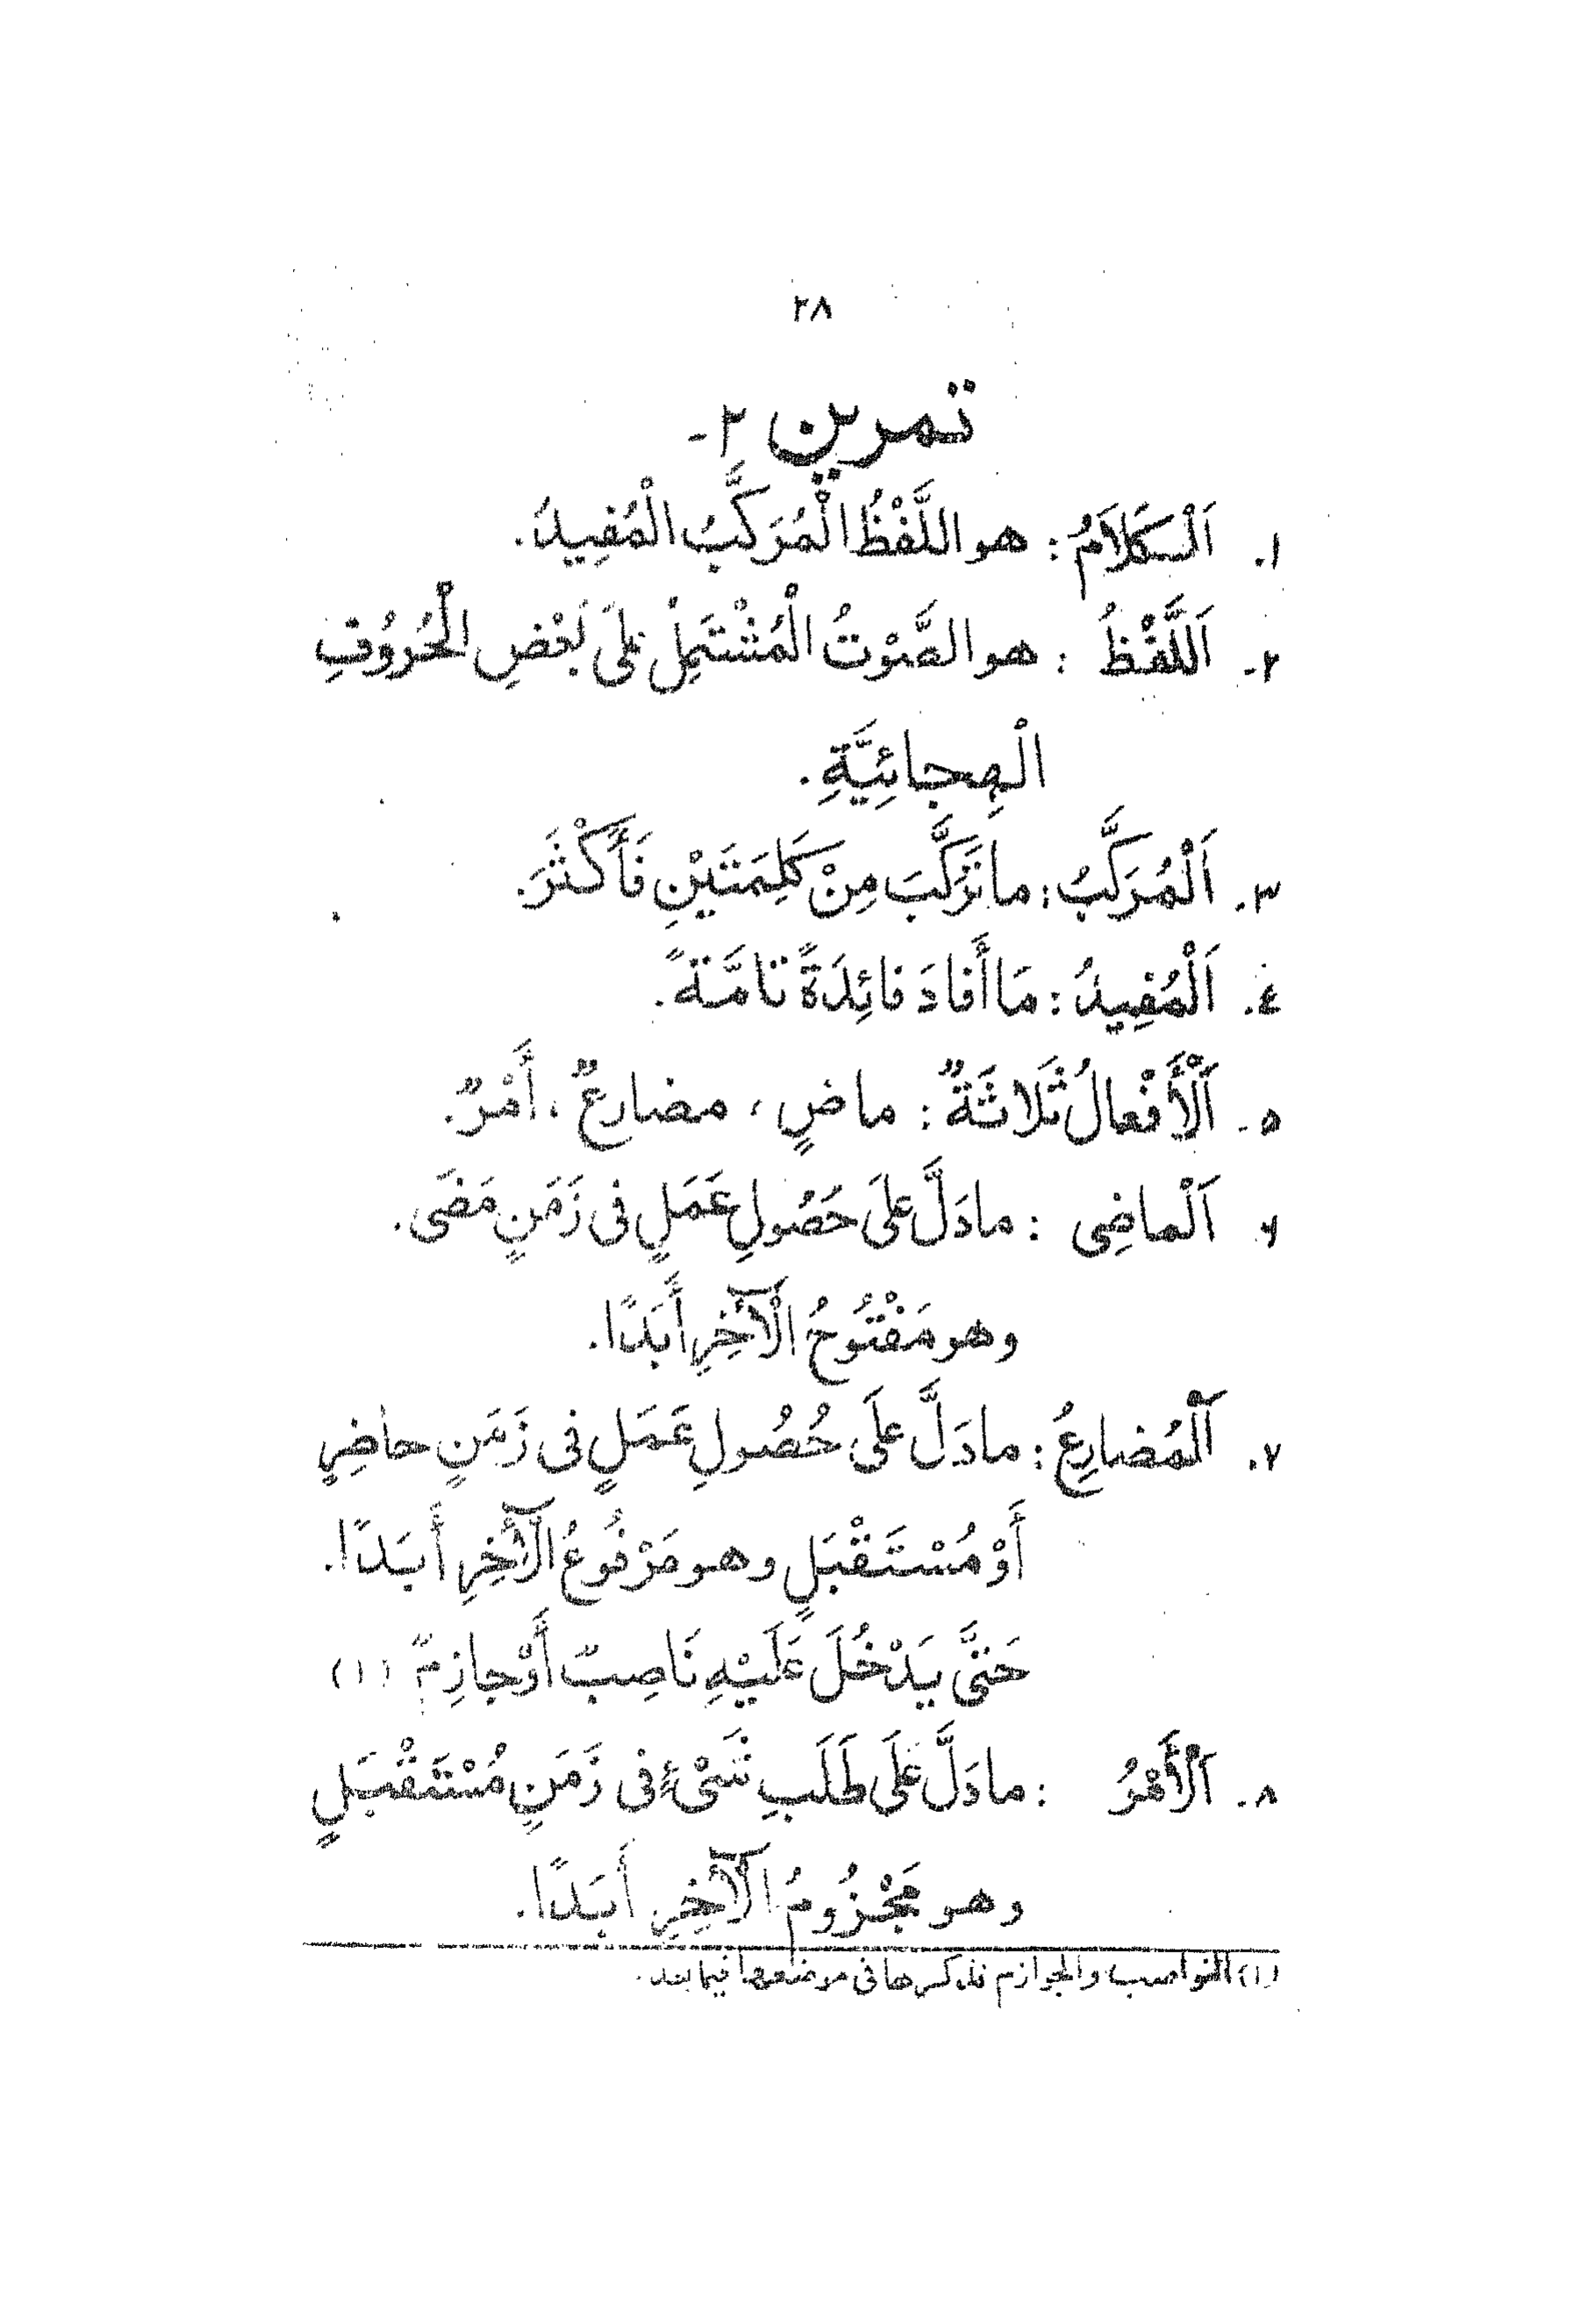 ٢٨
تمرين ٢-
١. اَلْكَلاَمُ : هو اللَّفْظُ الْمُرَكَّبُ الْمُفِيدُ.
٢- اَللَّفْظُ : هو الصَّوْتُ الْمُشْتَمِلُ عَلَى بَعْضِ الْحُرُوُفِ
الْهِجائِيَّةِ.
٣. اَلْمُرَكَّبُ : ما تَرَكَّبَ مِنْ كَلِمَتَيْنِ فَأَكْثَرَ.
٤. اَلْمُفِيدُ : مَا أَفادَ فائِدَةً تامَّةً.
٥- اَلْأَفْعالُ ثَلَاثَةٌ : ماضٍ ، مضارعٌ ، أَمْرٌ.
٦ اَلْماضِى : مادَلَّ علَى حَصُولِ عَمَلٍ فى زَمَنٍ مَضَى.
وهو مَفْتُوحُ الْآخِرِ أَبَدًا.
٧. اَلْمُضارِعُ : مادَلَّ علَى حُصُولِ عَمَلٍ فى زَمَنٍ حاضِرٍ
أَوْ مُسْتَقْبَلٍ وهو مَرْفُوعُ الْآخِرِ أَبَدًا.
حَتَّى يَدْخُلَ عَلَيْهِ نَاصِبٌ أَوْ جازِمٌ (١)
٨- اَلْأَمْرُ : مادَلَّ عَلَى طَلَبِ شَىْءٍ فى زَمَنٍ مُسْتَقْبَلٍ
وهو مَجْزُومُ الْآخِرِ أَبَدًا.
(١) النواصب والجوازم نذكرها فى موضعها فيما بعد.